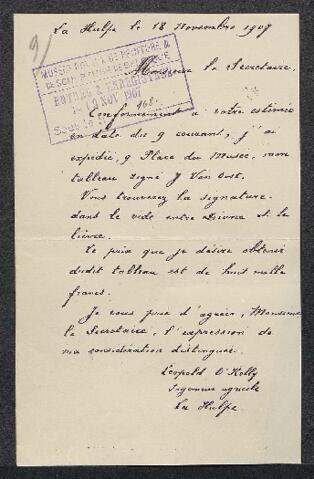 La Hulpe le 18 Novembre 1907
9
MUSÉES ROYAUX DE PEINTURE &
DE SCULPTURE DE BELGIQUE
ENTRÉE & ENREGISTRÉ
le 19 NOV 1907
Sous le n° 168.
Monsieur le Secrétaire.
Conformément à votre estimée
en date du 9 courant, j'ai
expédié, 9 Place du Musée, mon
tableau signé J Van Oost.
Vous trouverez la signature
dans le vide entre et le
lièvre.
Le prix que je désire obtenir
dudit tableau est de huit mille
francs.
Je vous prie d'agréer, Monsieur
le Secrétaire, l'expression de
ma considération distinguée.
Léopold O'Kelly
Ingénieur agricole
La Hulpe.